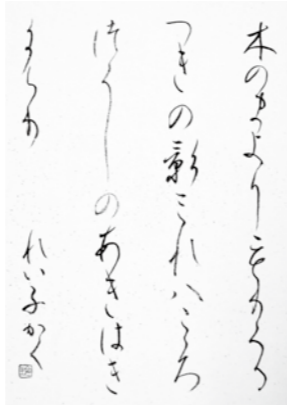 木のまよりもりくる
つきの影みれハこゝろ
つくしのあきはき
にけり れい子かく